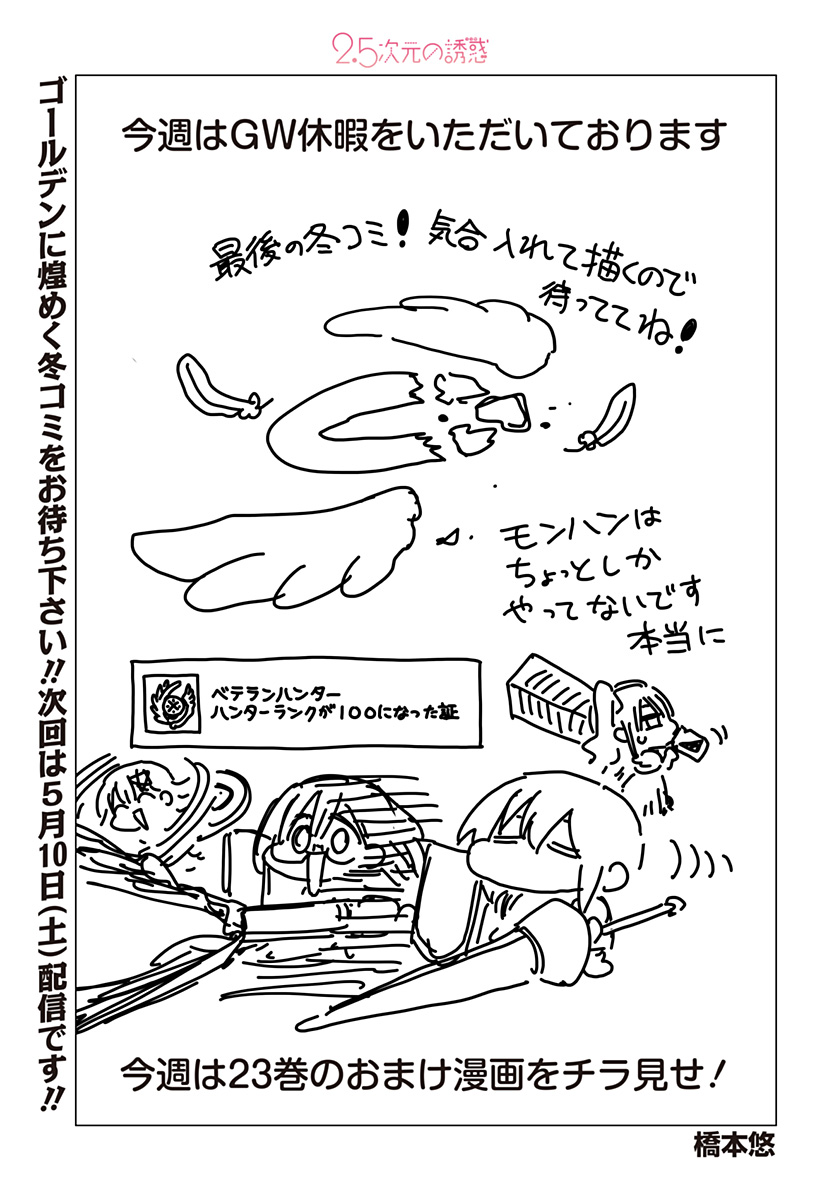 2.5次元の誘惑
今週はGW休暇をいただいております
最後の冬コミ！気合入れて描くので
待っててね！
モンハンは
ちょっとしか
やってないです
本当に
ベテランハンター
ハンターランクが100になった証
今週は23巻のおまけ漫画をチラ見せ！
ゴールデンに煌めく冬コミをお待ち下さい!!次回は5月10日(土)配信です!!
橋本悠